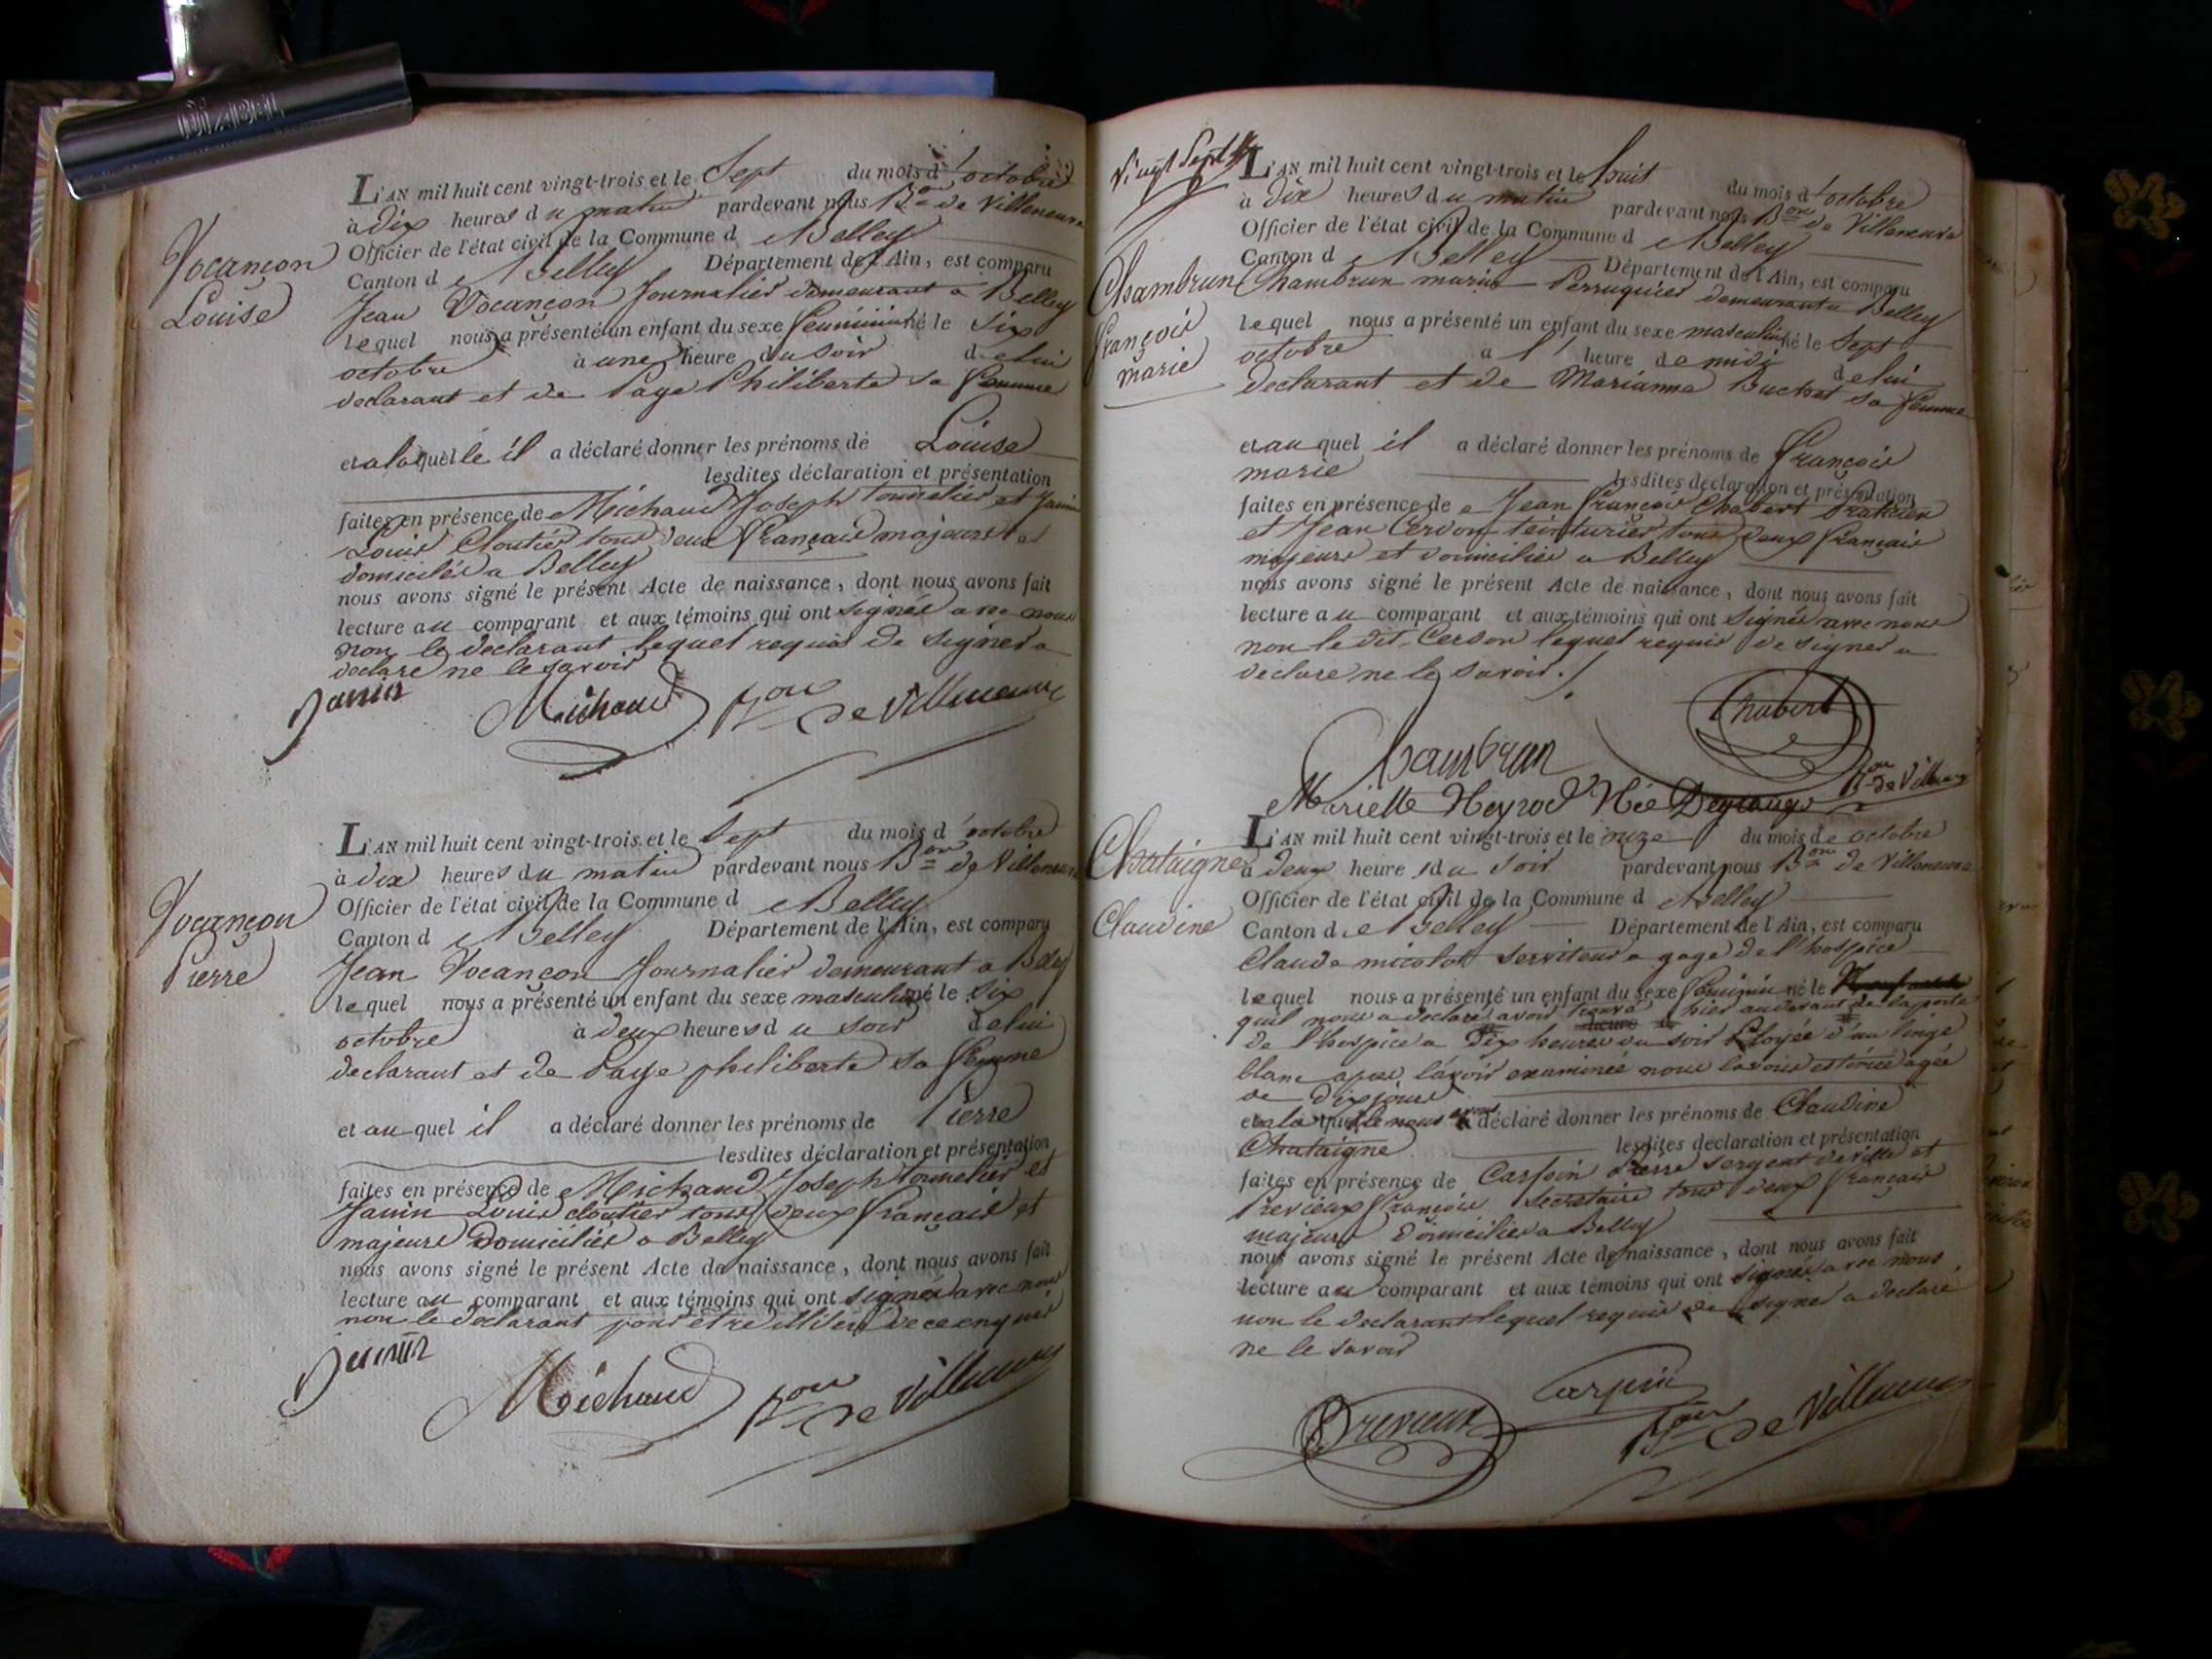 DIABEL
L'AN mil huit cent vingt-trois et le Sept du mois d'octobre
à dix heures du matin pardevant nous Bon de Villeneuve
Officier de l'état civil de la Commune de Belley
Canton de Belley Département de l'Ain, est comparu
Vocançon
Louise
Jean Vocançon Journalier demeurant a Belley
lequel nous a présenté un enfant du sexe feminin né le Six
octobre à une heure du soir de lui
declarant et de Page Philiberte sa femme
et a laquelle il a déclaré donner les prénoms de Louise
lesdites déclaration et présentation
faites en présence de Michaud Joseph tournelier et Janin
Louis Cloutier tous deux français majeurs et
domiciliés a Belley
nous avons signé le présent Acte de naissance, dont nous avons fait
lecture au comparant et aux témoins qui ont signés avec nous
non le declarant lequel requis de signer a
declare ne le savoir
Janin Michaud Bon de Villeneuve
L'AN mil huit cent vingt-trois et le Sept du mois d'octobre
à dix heures du matin pardevant nous Bon de Villeneuve
Officier de l'état civil de la Commune de Belley
Canton de Belley Département de l'Ain, est comparu
Vocançon
Pierre
Jean Vocançon Journalier demeurant a Belley
lequel nous a présenté un enfant du sexe masculin né le Six
octobre à deux heures du soir de lui
declarant et de Page philiberte sa femme
et au quel il a déclaré donner les prénoms de Pierre
lesdites déclaration et présentation
faites en présence de Michaud Joseph tournelier et
Janin Louis cloutier tous deux français et
majeurs Domiciliés a Belley
nous avons signé le présent Acte de naissance, dont nous avons fait
lecture au comparant et aux témoins qui ont signés avec nous
non le declarant pour être illiteré de ce enquis
Janin
Michaud Bon de Villeneuve
Vingt Sept
L'AN mil huit cent vingt-trois et le huit du mois d'octobre
à dix heures du matin pardevant nous Bon de Villeneuve
Officier de l'état civil de la Commune de Belley
Canton de Belley Département de l'Ain, est comparu
Chambrun
françois
marie
Chambrun marin Perruquier demeurant a Belley
lequel nous a présenté un enfant du sexe masculin né le Sept
octobre à l'heure de midi de lui
declarant et de Marianne Buchet sa femme
et au quel il a déclaré donner les prénoms de François
marie
lesdites déclaration et présentation
faites en présence de Jean françois Chabert
et Jean Cerdon teinturier tous deux français
majeurs et domiciliés a Belley
nous avons signé le présent Acte de naissance, dont nous avons fait
lecture au comparant et aux témoins qui ont Signés avec nous
non le dit Cerdon lequel requis de signer a
declare ne le savoir./
Chabert
Chambrun
Bon de Villeneuve
Mariette Née
L'AN mil huit cent vingt-trois et le onze du mois de octobre
Chataigne
Claudine
à deux heures du soir pardevant nous Bon de Villeneuve
Officier de l'état civil de la Commune de Belley
Canton de Belley Département de l'Ain, est comparu
Claude micolot serviteur a gage de l'hospice
lequel nous a présenté un enfant du sexe feminin né le
quil nous a declaré avoir trouvé hier au devant de la porte
de l'hospice a Dix heures du soir Ployée d'un linge
blanc apres l'avoir examinée nous lavons estimée agée
de Dix jours
et a la quelle nous avons déclaré donner les prénoms de Claudine
Chataigne
lesdites déclaration et présentation
faites en présence de Carpin Pierre sergent de ville et
Prevíeux françois secretaire tous deux français
majeurs Domiciliés a Belley
nous avons signé le présent Acte de naissance, dont nous avons fait
lecture au comparant et aux témoins qui ont signés avec nous
non le declarant lequel requis de signer a declaré
ne le savoir
Carpin
Prevíeux Bon de Villeneuve